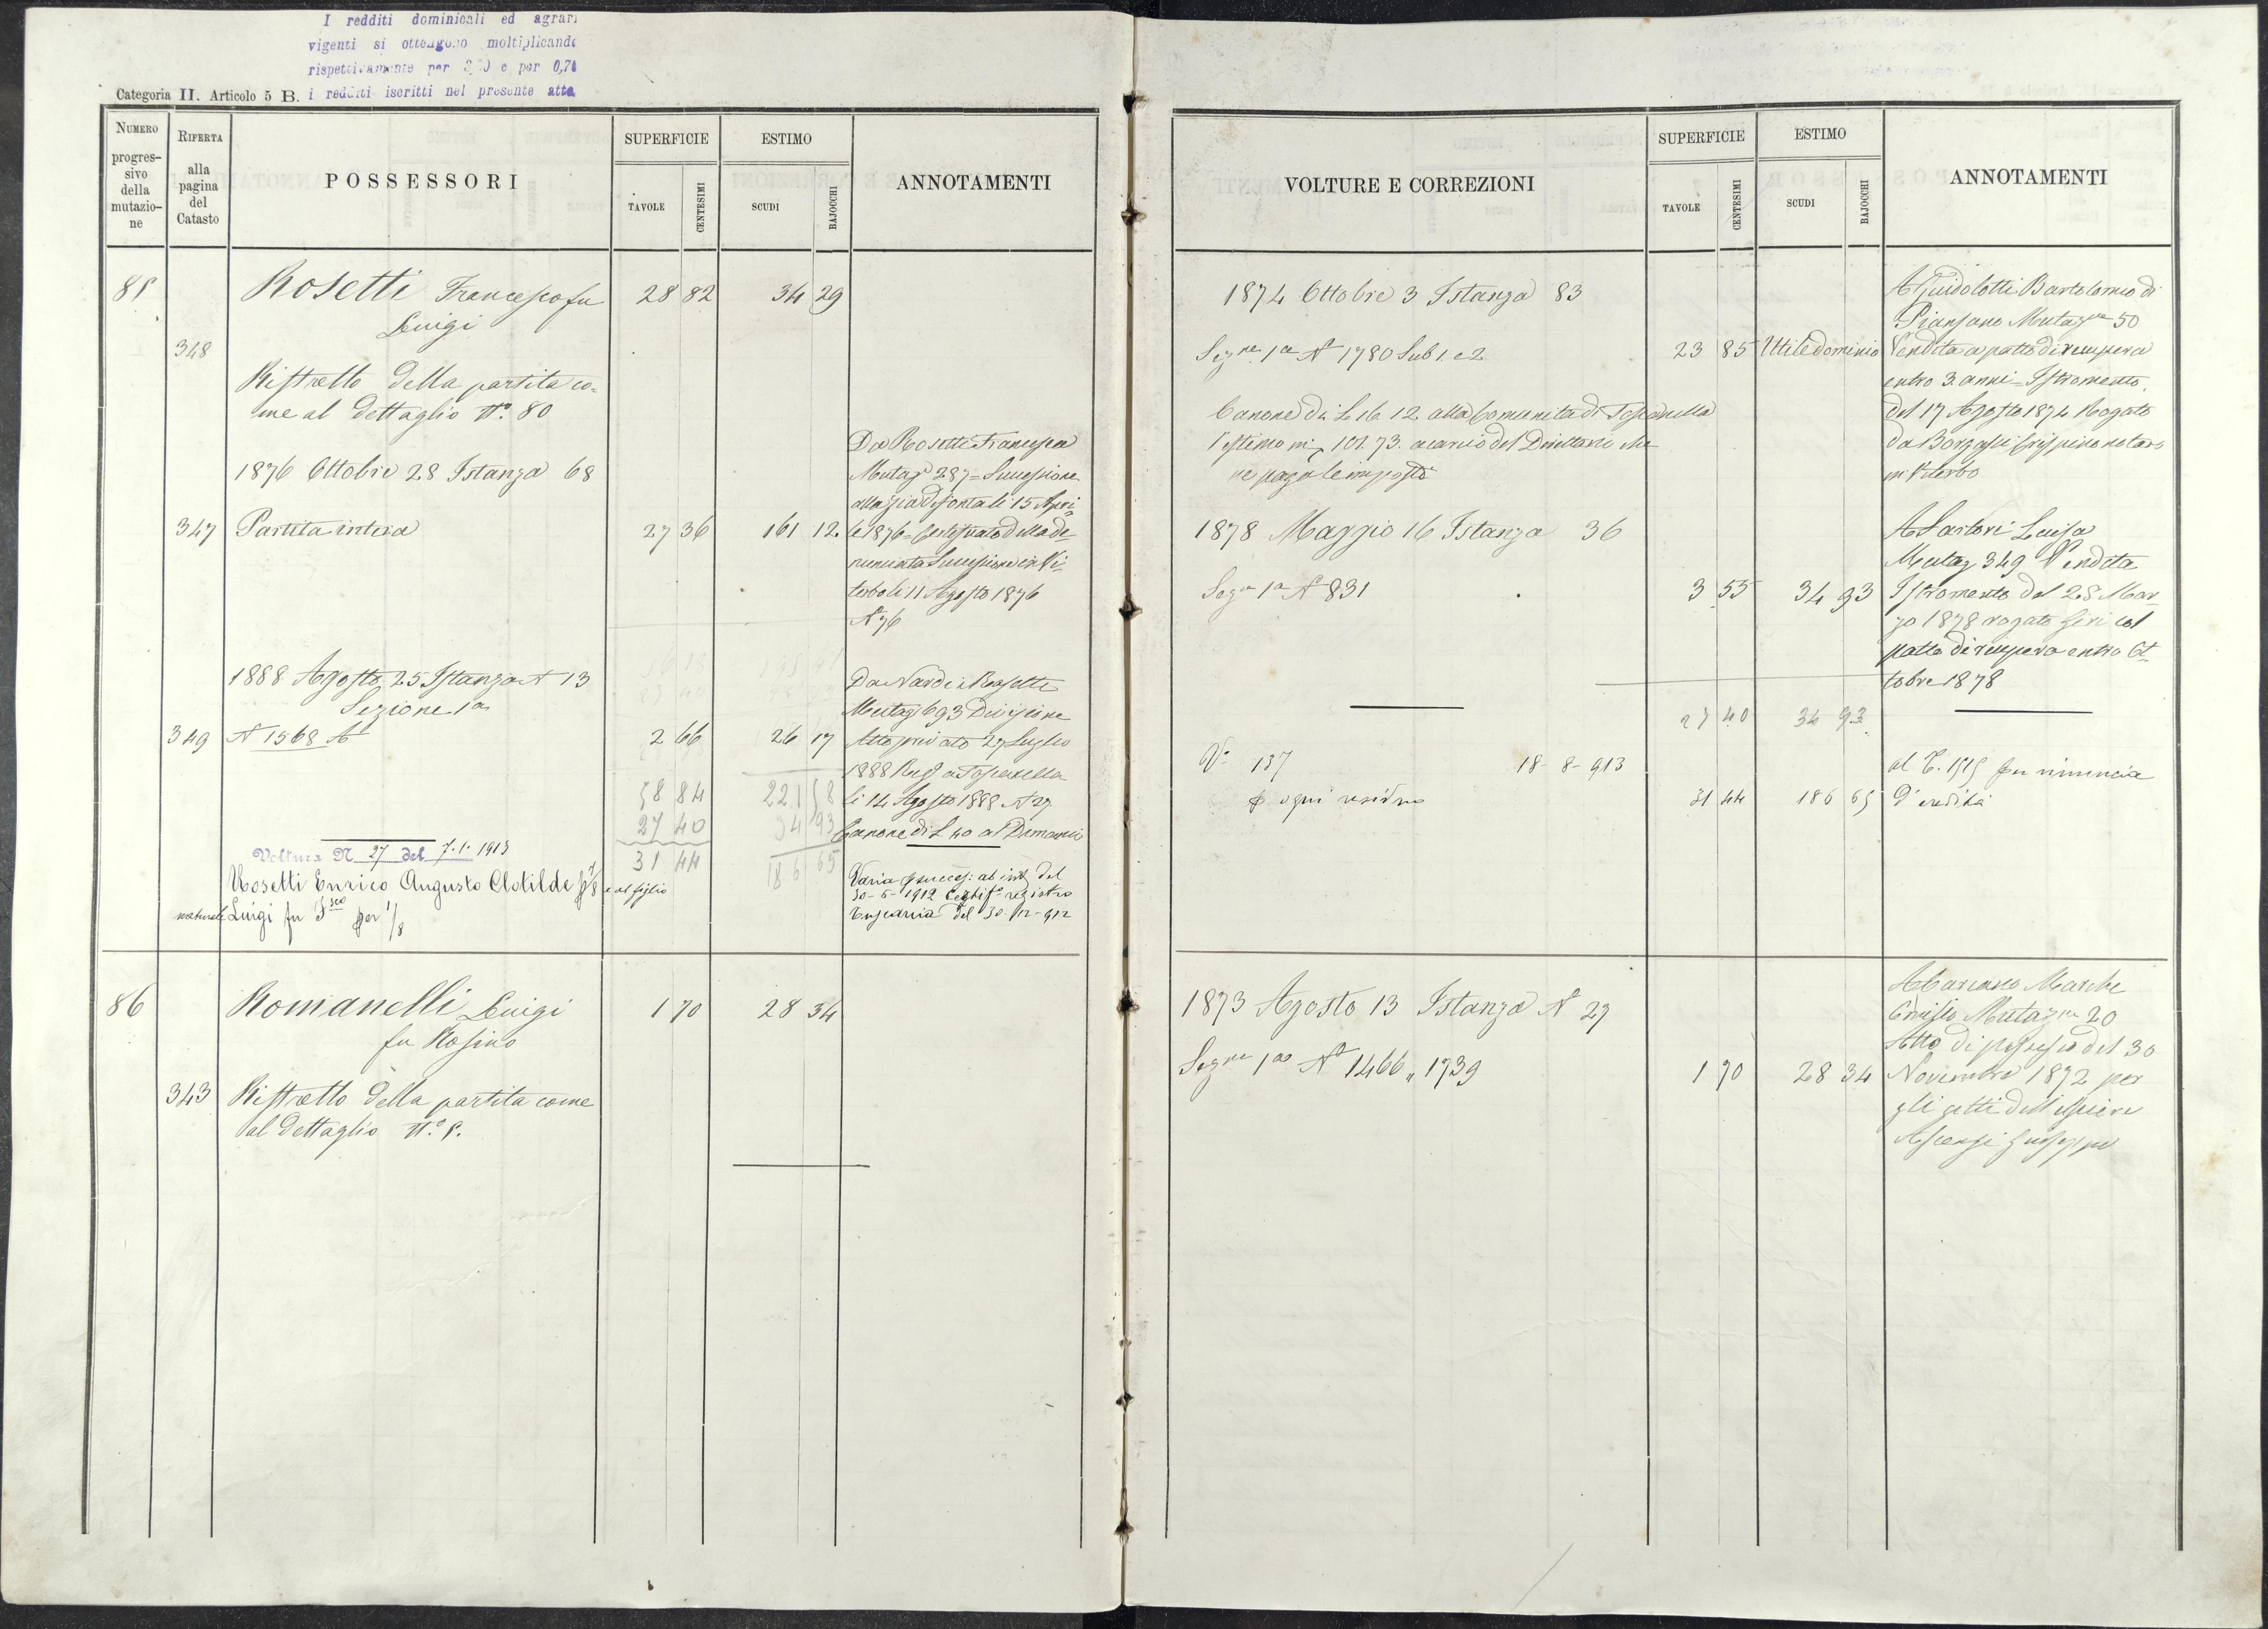 I redditi dominicali ed agrari
vigenti si ottengono moltiplicando
rispettivamente per e per 0,70
i redditi iscritti nel presente atto
Categoria II. Articolo 5 B.
NUMERO progressivo della mutazione
RIFERTA alla pagina del Catasto
POSSESSORI
SUPERFICIE
TAVOLE
CENTESIMI
ESTIMO
SCUDI
BAJOCCHI
ANNOTAMENTI
85
Rosetti Francesco fu
Luigi
28 82
34 29
348
Ristretto della partita co=
me al dettaglio N.° 80
1876 Ottobre 28 Istanza 68
347 Partita intera
27 36
161 12
Da Rosetti Francesca
Mutaz 287 = Successione
alla zia defonta li 15 Apri=
le 1876 = Certificato della de=
nunciata Successione in Vi=
terbo li 11 Agosto 1876
N 76
1888 Agosto 25 Istanza N 13
Sezione 1a
349 N 1568 A
2 66
26 17
Da Nardi e Rosetti
Mutaz 693 Divisione
Atto privato 27 Luglio
1888 Reg a Toscanella
li 14 Agosto 1888 N 27
Canone di L 40 al Demanio
58 84
221 58
27 40
34 93
31 44
186 65
Voltura N 27 del 7.1.1913
Rosetti Enrico Augusto Clotilde p 7/8 e al figlio
naturale Luigi fu Fsco per 1/8
Varia p success: ab int del
30-5-1912 Certif° registro
Tuscania del 30-12-912
86
Romanelli Luigi
fu Rosino
1 70
28 34
343 Ristretto della partita come
al dettaglio N.° 8.
VOLTURE E CORREZIONI
SUPERFICIE
TAVOLE
CENTESIMI
ESTIMO
SCUDI
BAJOCCHI
ANNOTAMENTI
1874 Ottobre 3 Istanza 83
Sezne 1a N 1780 Sub 1 e 2
23 85 Utile dominio
Canone di L 16.12 alla Comunità di Toscanella
l'estimo in 101.73. a carico del Direttario che
ne paga le imposte
A Guidolotti Bartolomeo di
Piansano Mutazne 50
Vendita a patto di recupera
entro 3 anni = Istromento
del 17 Agosto 1874 Rogato
da Borgassi Crispino notaro
in Viterbo
1878 Maggio 16 Istanza 36
Sezne 1a N 831
3 55
34 93
A Sartori Luisa
Mutaz 349 Vendita
Istromento del 28 Mar=
zo 1878 rogato Geri col
patto di recupera entro Ot=
tobre 1878
27 40
34 93
V° 137
18-8-913
p ogni residuo
31 44
186 65
al T. 1515 per rinuncia
d'eredità
1873 Agosto 13 Istanza N 27
Sezne 1a N° 1466 „ 1739
1 70
28 34
A Marcano Marche
Emilio Mutazne 20
Atto di possesso del 30
Novembre 1872 per
gli atti dell'Usciere
Ascenzi Giuseppe